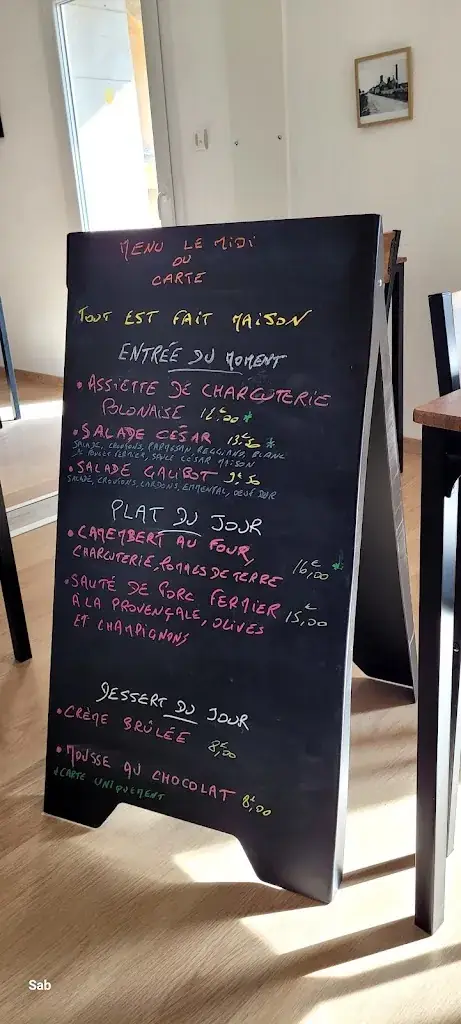 MENU LE MIDI
OU
CARTE
TOUT EST FAIT MAISON
ENTRÉE DU MOMENT
• ASSIETTE DE CHARCUTERIE
POLONAISE 16€00 *
• SALADE CÉSAR 13€50 *
SALADE, CROUTONS, PARMESAN, REGGIANO, BLANC
DE POULE FERMIER, SAUCE CÉSAR MAISON
• SALADE GALIBOT 9€50
SALADE, CROUTONS, LARDONS, EMMENTAL, OEUF DUR
PLAT DU JOUR
• CAMEMBERT AU FOUR,
CHARCUTERIE, POMMES DE TERRE 16€,00 *
• SAUTÉ DE PORC FERMIER
À LA PROVENÇALE, OLIVES 15€,00
ET CHAMPIGNONS
DESSERT DU JOUR
• CRÈME BRÛLÉE 8€,00
• MOUSSE AU CHOCOLAT 8€,00
* CARTE UNIQUEMENT
Sab